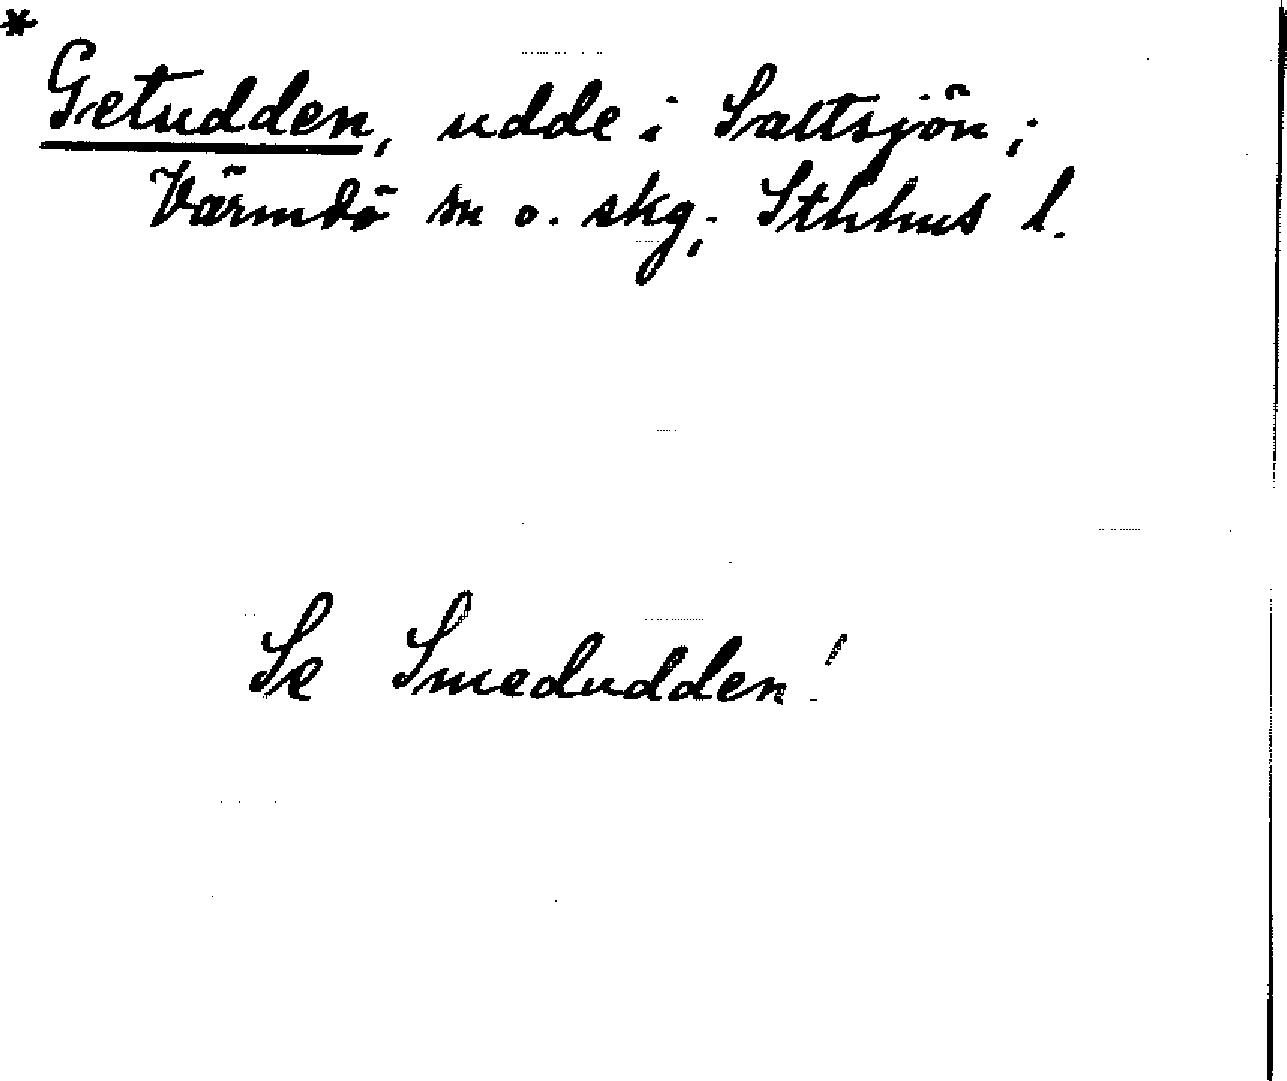 *
Getudden, udde i Saltsjön;
Värmdö sn o. skg; Sthlms l.
Se Smedudden!